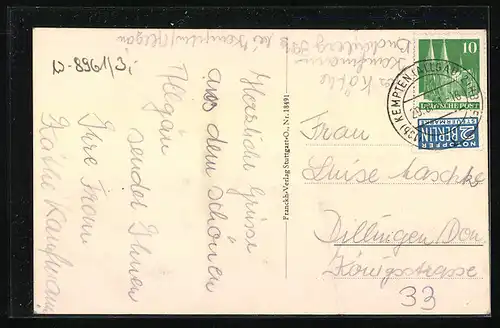 D-8961/3,-
Herzliche Grüsse
aus dem schönen
Allgäu
sendet Ihnen
Ihre Frau
Käthe Kaufmann
Kaufmann
bei Kempten/Allgäu
Franckh-Verlag Stuttgart-O., Nr. 18491
10
DEUTSCHE POST
KEMPTEN (ALLGÄU)
NOTOPFER
2 BERLIN
STEUERMARKE
Frau
Luise
Dillingen/Don.
Königsstrasse
33